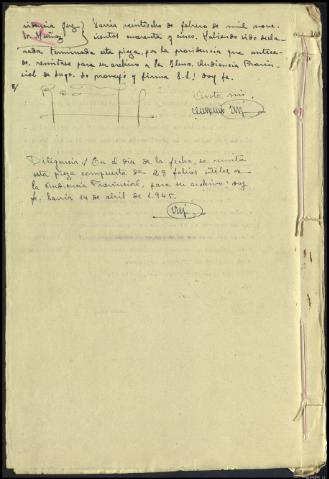 Sarria veintiocho de febrero de mil nove-
Sr. Muñoz cientos cuarenta y cinco. Habiendo sido decla-
rada terminada esta pieza, por la providencia que antece-
de, remítase para su archivo a la Iltma. Audiencia Provin-
cial de Lugo. Lo proveyó y firma S.Sª doy fe.
Ante mi.
Diligencia/ En el día de la fecha, se remite
esta pieza compuesta de 23 folios útiles a
la Audiencia Provincial, para su archivo; doy
fe. Sarria 14 de abril de 1.945.